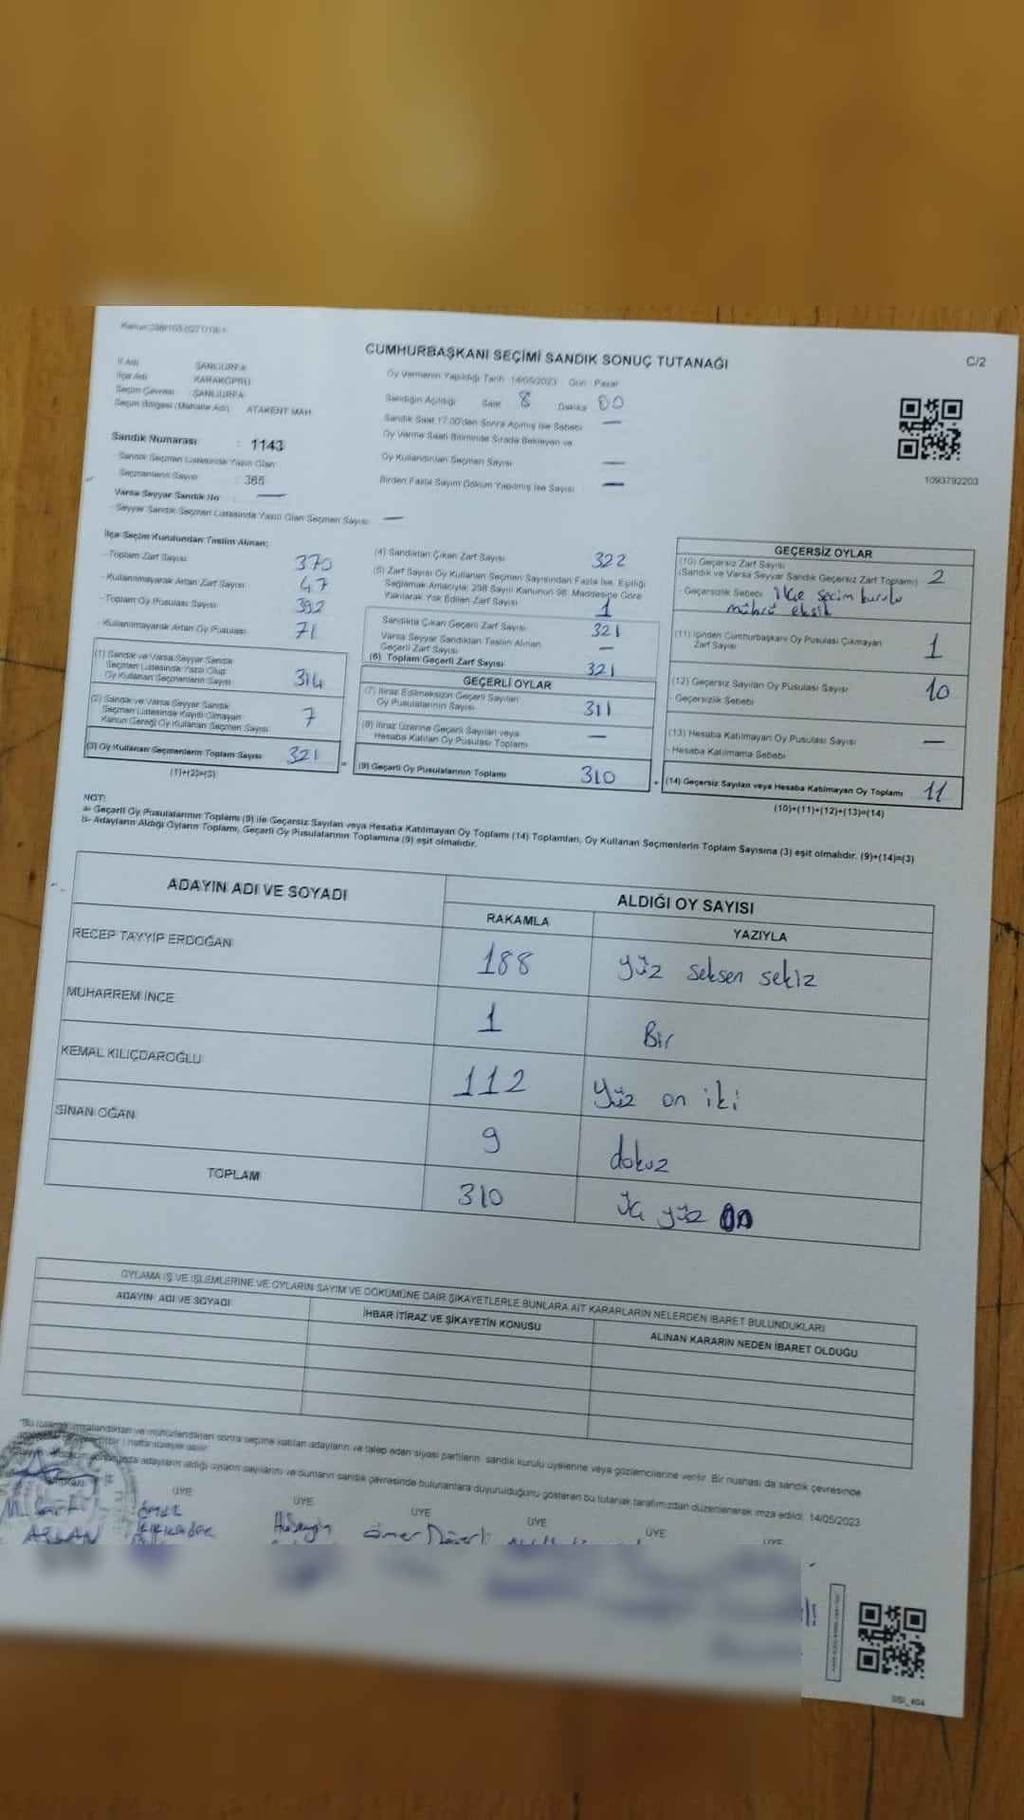 CUMHURBAŞKANI SEÇİMİ SANDIK SONUÇ TUTANAĞI
C/2
İl Adı ŞANLIURFA
İlçe Adı KARAKÖPRÜ
Seçim Çevresi ŞANLIURFA
Seçim Bölgesi (Mahalle Adı) ATAKENT MAH.
Sandık Numarası : 1143
Sandık Seçmen Listesinde Yazılı Olan
Seçmenlerin Sayısı : 365
Varsa Seyyar Sandık No : —
Seyyar Sandık Seçmen Listesinde Yazılı Olan Seçmen Sayısı —
Oy Vermenin Yapıldığı Tarih : 14/05/2023 Gün : Pazar
Sandığın Açıldığı Saat 8 Dakika 00
Sandık Saat 17.00'den Sonra Açılmış İse Sebebi —
Oy Verme Saati Bitiminde Sırada Bekleyen ve
Oy Kullandırılan Seçmen Sayısı —
Birden Fazla Sayım Döküm Yapılmış İse Sayısı —
1093792203
İlçe Seçim Kurulundan Teslim Alınan;
- Toplam Zarf Sayısı 370
- Kullanılmayarak Artan Zarf Sayısı 47
- Toplam Oy Pusulası Sayısı 392
- Kullanılmayarak Artan Oy Pusulası 71
(1) Sandık ve Varsa Seyyar Sandık
Seçmen Listesinde Yazılı Olup
Oy Kullanan Seçmenlerin Sayısı 314
(2) Sandık ve Varsa Seyyar Sandık
Seçmen Listesinde Kayıtlı Olmayan
Kanun Gereği Oy Kullanan Seçmen Sayısı 7
(3) Oy Kullanan Seçmenlerin Toplam Sayısı 321
(1)+(2)=(3)
(4) Sandıktan Çıkan Zarf Sayısı 322
(5) Zarf Sayısı Oy Kullanan Seçmen Sayısından Fazla İse, Eşitliği
Sağlamak Amacıyla, 298 Sayılı Kanunun 98. Maddesine Göre
Yakılarak Yok Edilen Zarf Sayısı 1
Sandıkta Çıkan Geçerli Zarf Sayısı 321
Varsa Seyyar Sandıktan Teslim Alınan
Geçerli Zarf Sayısı —
(6) Toplam Geçerli Zarf Sayısı 321
GEÇERLİ OYLAR
(7) İtiraz Edilmeksizin Geçerli Sayılan
Oy Pusulalarının Sayısı 311
(8) İtiraz Üzerine Geçerli Sayılan veya
Hesaba Katılan Oy Pusulası Toplamı —
(9) Geçerli Oy Pusulalarının Toplamı 310
GEÇERSİZ OYLAR
(10) Geçersiz Zarf Sayısı
(Sandık ve Varsa Seyyar Sandık Geçersiz Zarf Toplamı) 2
- Geçersizlik Sebebi ilçe seçim kurulu
mührü eksik
(11) İçinden Cumhurbaşkanı Oy Pusulası Çıkmayan
Zarf Sayısı 1
(12) Geçersiz Sayılan Oy Pusulası Sayısı 10
Geçersizlik Sebebi
(13) Hesaba Katılmayan Oy Pusulası Sayısı —
- Hesaba Katılmama Sebebi
(14) Geçersiz Sayılan veya Hesaba Katılmayan Oy Toplamı 11
(10)+(11)+(12)+(13)=(14)
NOT:
a- Geçerli Oy Pusulalarının Toplamı (9) ile Geçersiz Sayılan veya Hesaba Katılmayan Oy Toplamı (14) Toplamları, Oy Kullanan Seçmenlerin Toplam Sayısına (3) eşit olmalıdır. (9)+(14)=(3)
b- Adayların Aldığı Oyların Toplamı, Geçerli Oy Pusulalarının Toplamına (9) eşit olmalıdır.
ADAYIN ADI VE SOYADI
ALDIĞI OY SAYISI
RAKAMLA YAZIYLA
RECEP TAYYİP ERDOĞAN 188 yüz seksen sekiz
MUHARREM İNCE 1 Bir
KEMAL KILIÇDAROĞLU 112 Yüz on iki
SİNAN OĞAN 9 dokuz
TOPLAM 310 üç yüz on
OYLAMA İŞ VE İŞLEMLERİNE VE OYLARIN SAYIM VE DÖKÜMÜNE DAİR ŞİKAYETLERLE BUNLARA AİT KARARLARIN NELERDEN İBARET BULUNDUKLARI
ADAYIN ADI VE SOYADI
İHBAR İTİRAZ VE ŞİKAYETİN KONUSU
ALINAN KARARIN NEDEN İBARET OLDUĞU
imzalandıktan ve mühürlendikten sonra seçime katılan adayların ve talep eden siyasi partilerin sandık kurulu üyelerine veya gözlemcilerine verilir. Bir nüshası da sandık çevresinde
adayların aldığı oyların sayılarını ve bunların sandık çevresinde bulunanlara duyurulduğunu gösteren bu tutanak tarafımızdan düzenlenerek imza edildi. 14/05/2023
ÜYE ÜYE ÜYE ÜYE ÜYE ÜYE
ASLAN Hüseyin Ömer